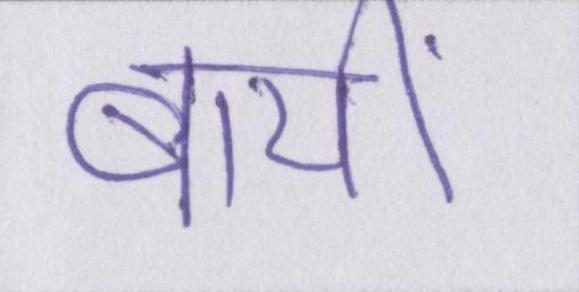 बायीं